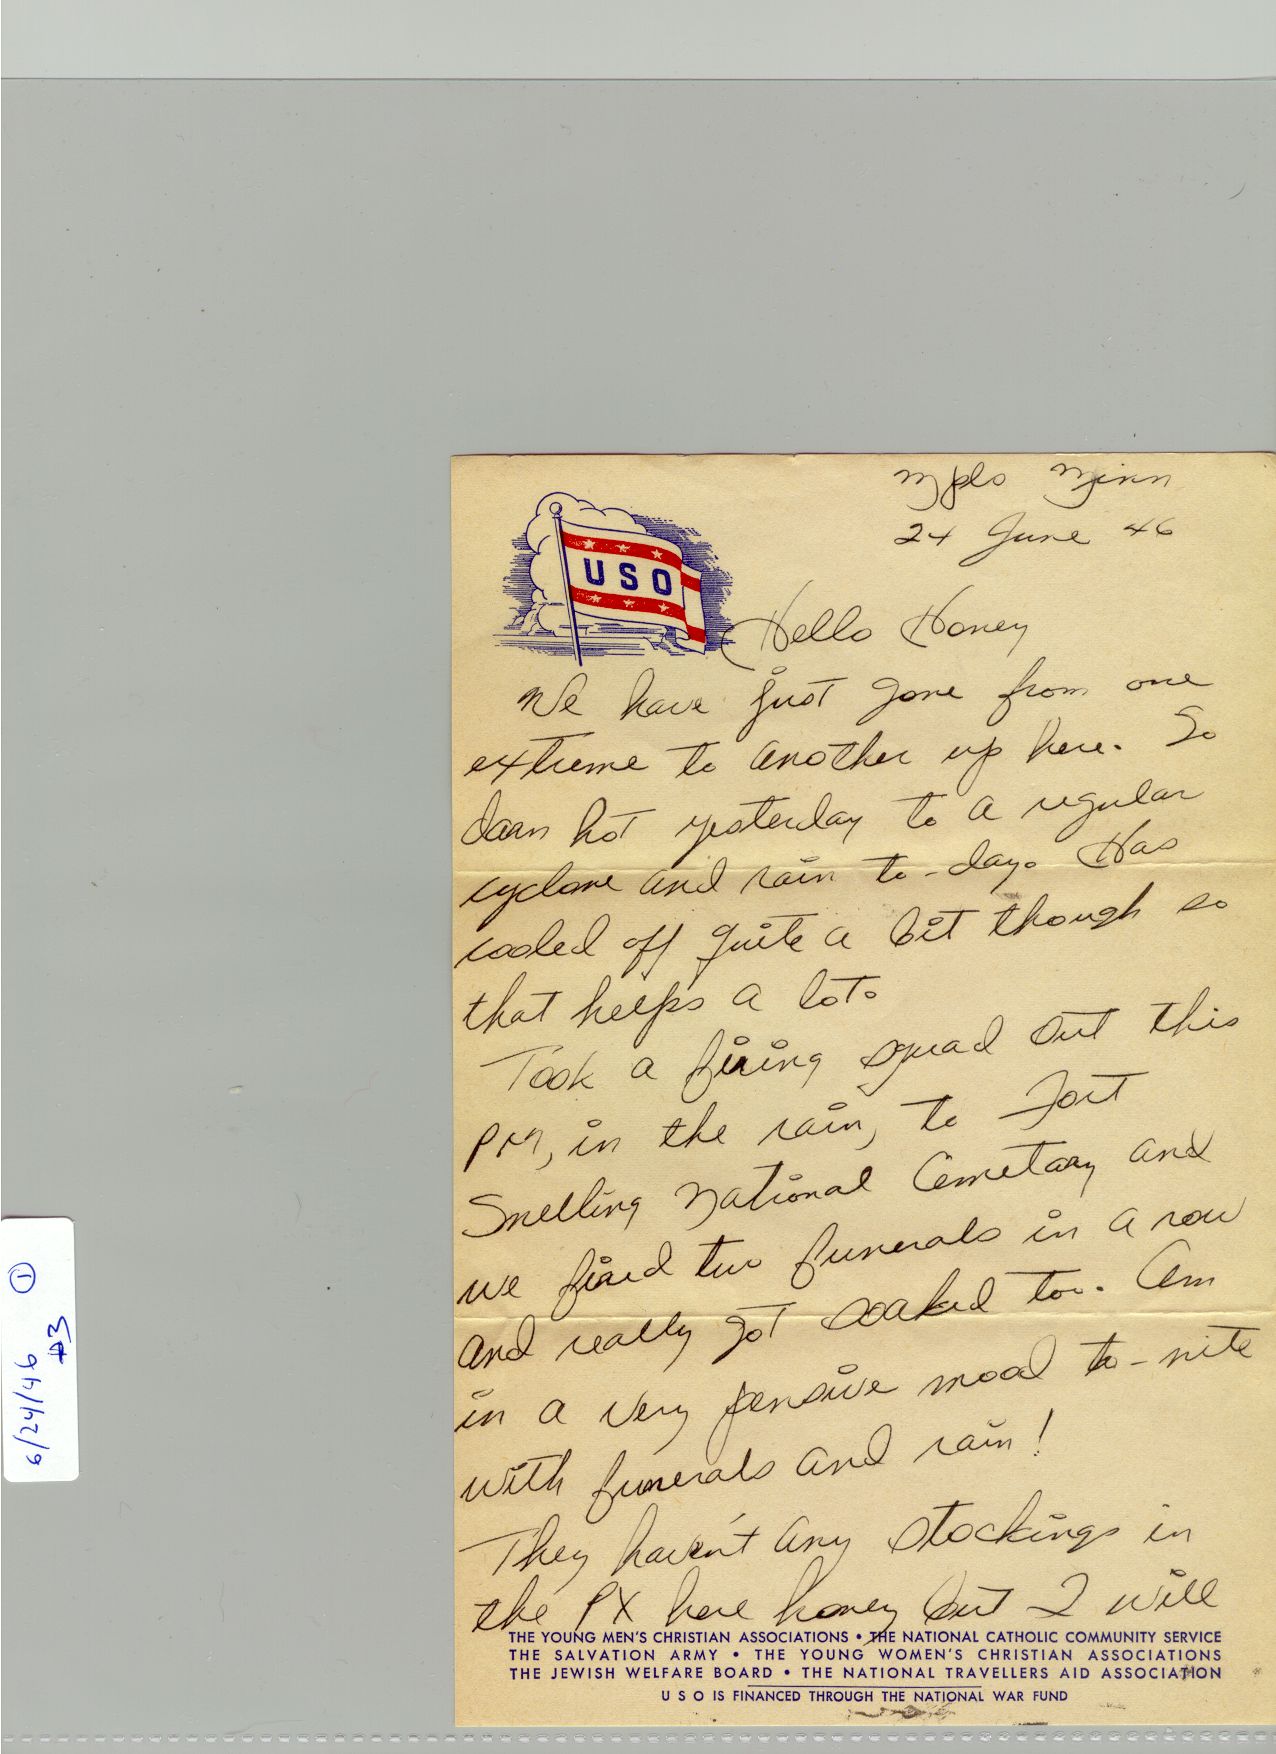 Mpls Minn
24 June 46
USO
Hello Honey
We have just gone from one
extreme to another up here. So
darn hot yesterday to a regular
cyclone and rain to-day. Has
cooled off quite a bit though so
that helps a lot.
Took a firing squad out this
PM, in the rain, to Fort
Snelling National Cemetary and
we fired two funerals in a row
and really got soaked too. Am
in a very pensive mood to-nite
with funerals and rain!
They haven't any stockings in
the PX here honey but I will
THE YOUNG MEN'S CHRISTIAN ASSOCIATIONS • THE NATIONAL CATHOLIC COMMUNITY SERVICE
THE SALVATION ARMY • THE YOUNG WOMEN'S CHRISTIAN ASSOCIATIONS
THE JEWISH WELFARE BOARD • THE NATIONAL TRAVELLERS AID ASSOCIATION
U S O IS FINANCED THROUGH THE NATIONAL WAR FUND
6/24/46 ①
#3